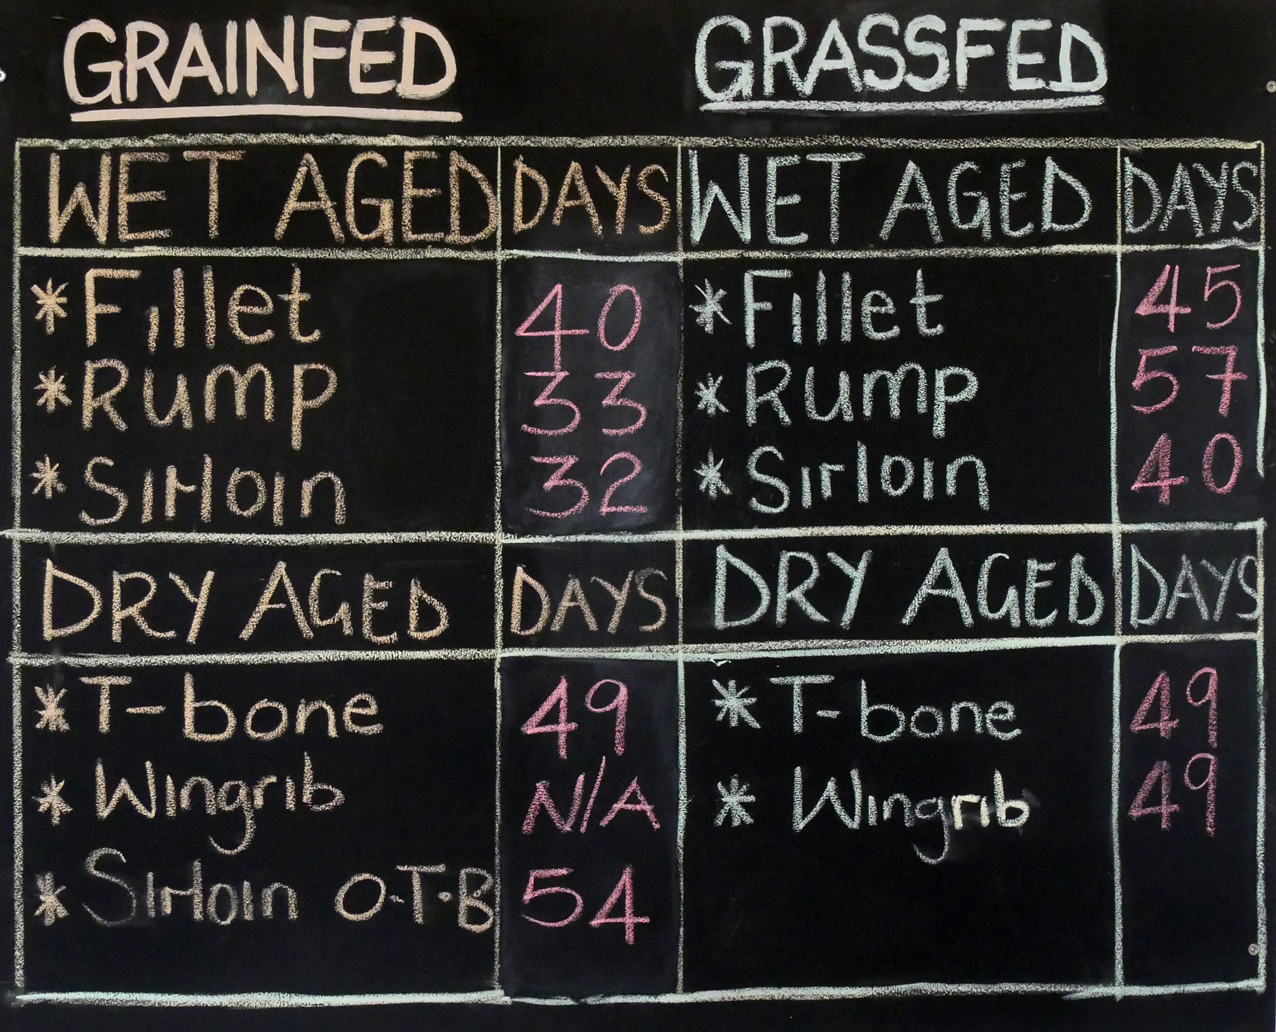 GRAINFED GRASSFED
WET AGED DAYS WET AGED DAYS
* Fillet 40 * Fillet 45
* Rump 33 * Rump 57
* Sirloin 32 * Sirloin 40
DRY AGED DAYS DRY AGED DAYS
* T-bone 49 * T-bone 49
* Wingrib N/A * Wingrib 49
* Sirloin O.T.B 54